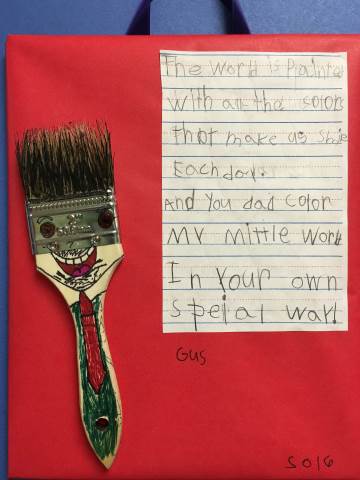 The World is Painted
with all the colors
that make us smile
Each day.
And You dad color
My little World
In Your own
Speial way!
Gus
2016